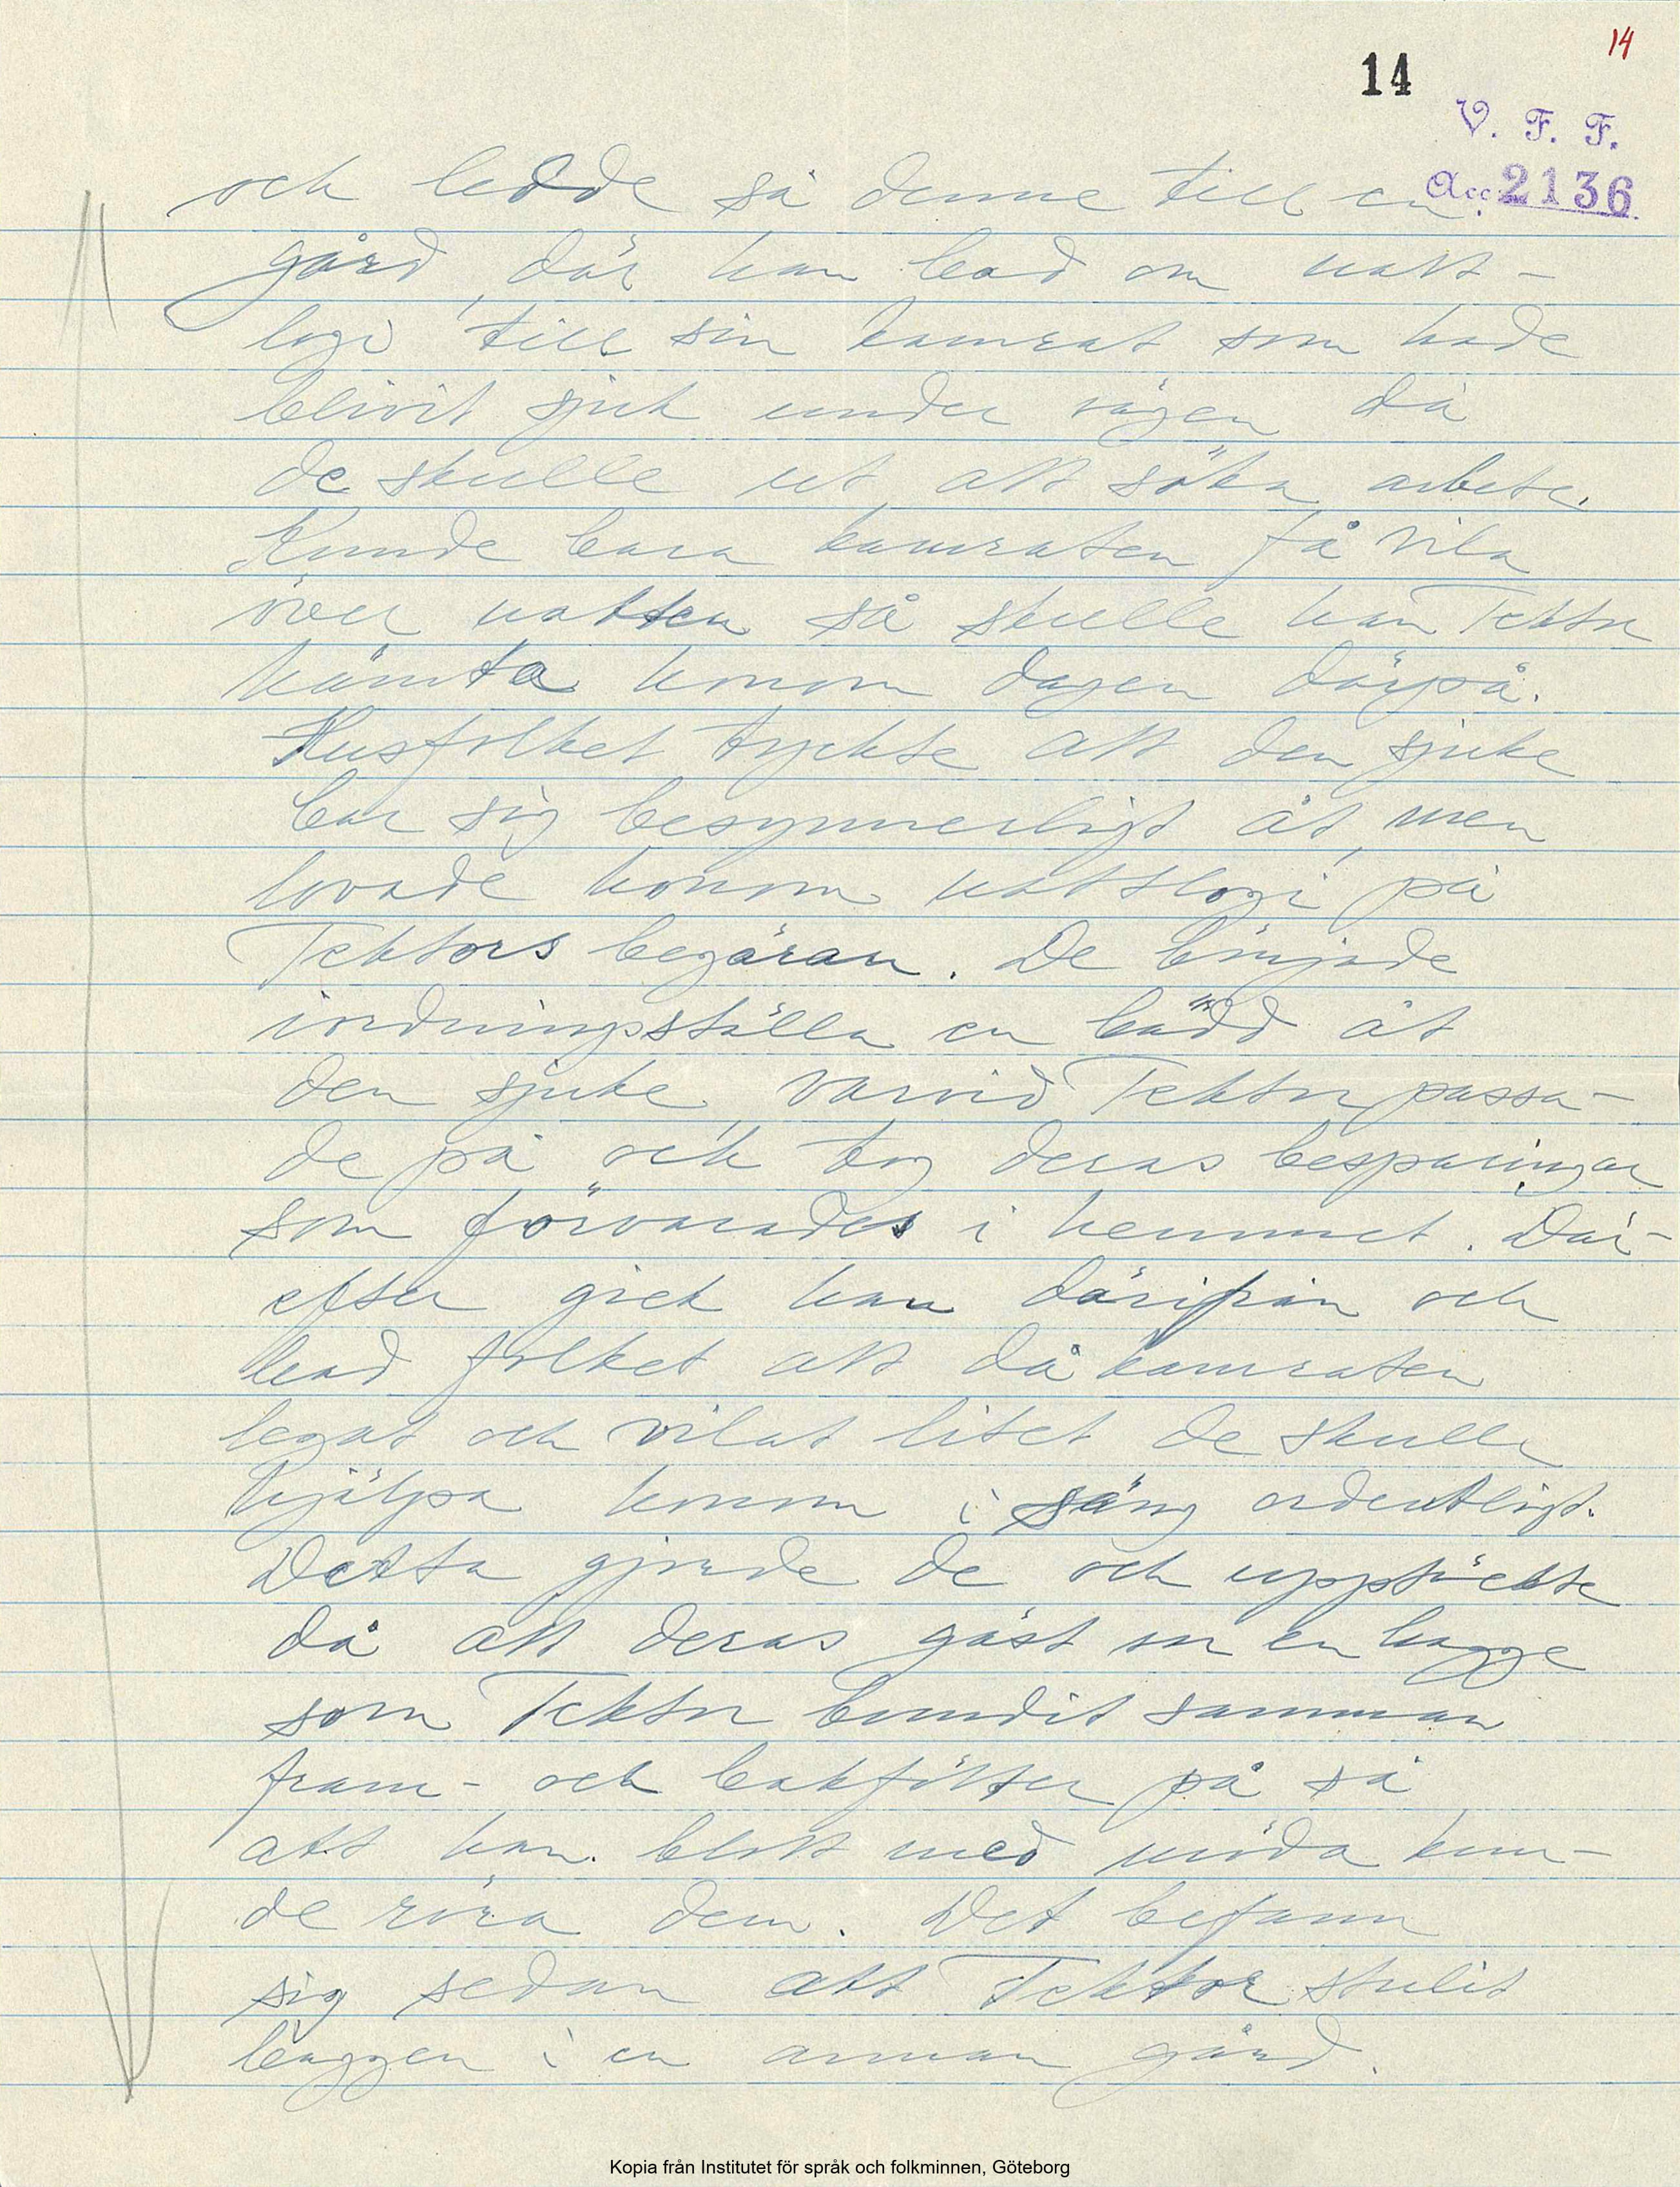 14
14
V. F. F.
Acc. 2136
och ledde så denne till en
gård, där han bad om natt-
logi till sin kamrat som hade
blivit sjuk under vägen då
de skulle ut att söka arbete.
Kunde bara kamraten få vila
över natten så skulle han Tektor
hämta honom dagen därpå.
Husfolket tyckte att den sjuke
bar sig besynnerligt åt, men
lovade honom nattlogi på
Tektors begäran. De började
iordningsställa en bädd åt
den sjuke, varvid Tektor passa-
de på och tog deras besparingar
som förvarades i hemmet. Där-
efter gick han därifrån och
bad folket att då kamraten
legat och vilat litet de skulle
hjälpa honom i säng ordentligt.
Detta gjorde de och upptäckte
då att deras gäst var en bagge
som Tektor bundit samman
fram- och bakfötter på så
att han blott med möda kun-
de röra dem. Det befann
sig sedan att Tektor stulit
baggen i en annan gård.
Kopia från Institutet för språk och folkminnen, Göteborg